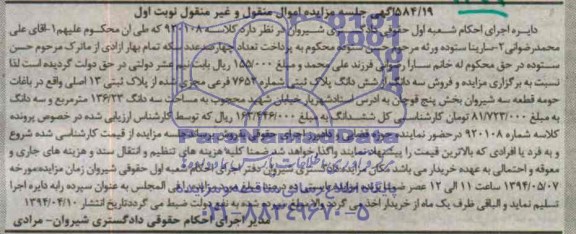 ۵۸۴/۱۹ آگهی جلسه مزایده اموال منقول و غیر منقول نوبت اول
دایره اجرای احکام شعبه اول حقوقی شیروان در نظر دارد کلاسه ۹۲۰۱۰۸ که طی آن محکوم علیهم ۱-آقای علی
محمدرضوانی ۲-سارینا ستوده ورثه مرحوم حسن ستوده محکوم به پرداخت تعداد چهارصد عدد سکه تمام بهار آزادی از ماترک مرحوم حسن
ستوده در حق محکوم له خانم سارا رسولی فرزند علی محمد و مبلغ ۱۵۵/۰۰۰ ریال بابت نیم عشر دولتی در حق دولت گردیده است لذا
نسبت به برگزاری مزایده و فروش سه دانگ از شش دانگ پلاک ثبتی شماره ۷۶۵۳ فرعی مجزی شده از پلاک ثبتی ۱۳ اصلی واقع در باغات
حومه قطعه سه شیروان بخش پنج قوچان به آدرس استاد شهریار خیابان شهید محجوب به مساحت سه دانگ ۱۳۶/۲۳ مترمربع و سه دانگ
به مبلغ ۸۱/۷۲۳/۰۰۰ تومان کارشناسی کل ششدانگ به مبلغ ۱۶۳/۴۴۶/۰۰۰ ریال که توسط کارشناس ارزیابی شده در خصوص پرونده
کلاسه شماره ۹۲۰۱۰۸ در حضور نماینده اجرای احکام حقوقی به فروش برساند مزایده از قیمت کارشناسی شده شروع
و به فرد یا افرادی که بالاترین قیمت را پیشنهاد نمایند واگذار خواهد شد ضمنا کلیه هزینه های تنظیم و انتقال سند و هزینه های جاری و
معوقه و احتمالی به عهده خریدار می باشد مکان مزایده دادگستری شیروان دفتر اجرای احکام شعبه اول حقوقی شیروان زمان مزایده مورخه
۱۳۹۴/۰۵/۰۷ ساعت ۱۱ الی ۱۲ عصر ضمنا فی المجلس به عنوان سپرده رابه دایره اجرا
تسلیم نماید و الباقی ظرف یک ماه از خریدار اخذ می گردد والا مبلغ سپرده شده به نفع دولت ضبط می گردد تاریخ انتشار ۱۳۹۴/۰۴/۱۰
مدیر اجرای احکام حقوقی دادگستری شیروان- مرادی
۰۲۱-۸۸۳۴۹۶۷۰-۵